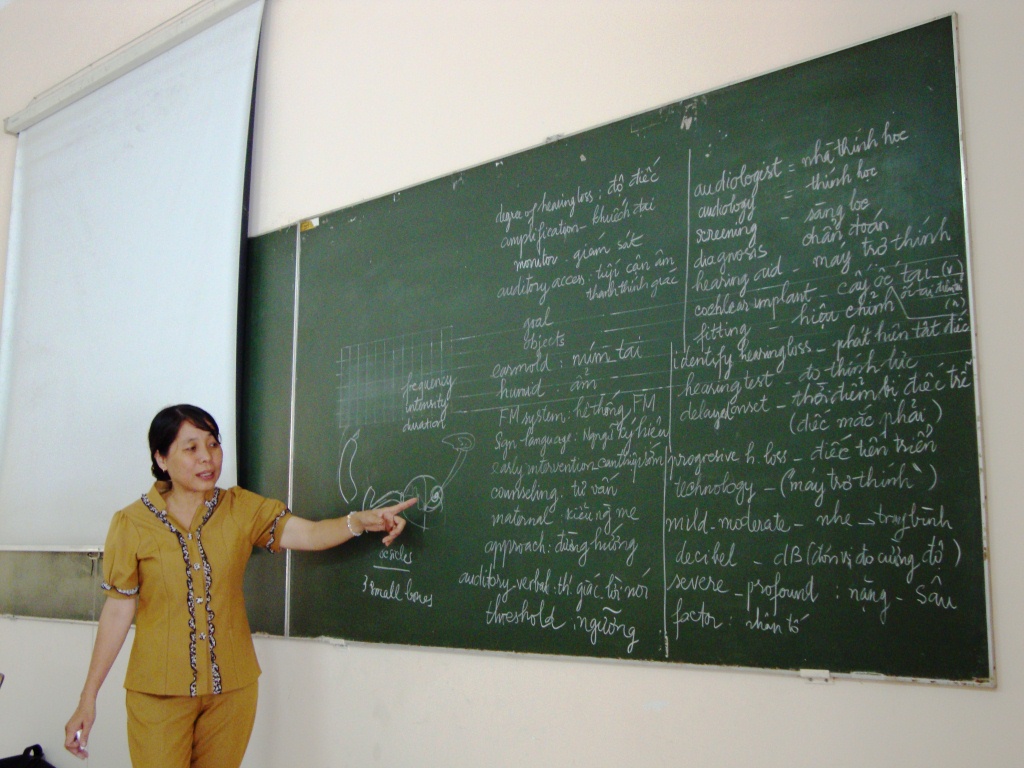 frequency
intensity
duration
ossicles
3 small bones
degree of hearing loss : độ điếc
amplification - khuếch đại
monitor - giám sát
auditory access : tiếp cận âm
thanh thính giác
goal
objects
earmold : núm tai
humid : ẩm
FM system : hệ thống FM
Sign-language : Ngngữ ký hiệu
early intervention : can thiệp sớm
counseling : tư vấn
maternal - kiểu ng mẹ
approach : đường hướng
auditory verbal : th. giác lời nói
threshold : ngưỡng
audiologist = nhà thính học
audiology = thính học
screening - sàng lọc
diagnosis chẩn đoán
hearing aid - máy trợ thính
cochlear implant - cấy ốc tai (v)
ốc tai điện tử
(n)
fitting - hiệu chỉnh
identify hearing loss - phát hiện tật điếc
hearing test - đo thính lực
delayed onset - thời điểm bị điếc trễ
(điếc mắc phải)
progresive h. loss - điếc tiến triển
technology - (máy trợ thính)
mild - moderate - nhẹ → trung bình
decibel - dB (đơn vị đo cường độ)
severe - profound : nặng - sâu
factor : nhân tố